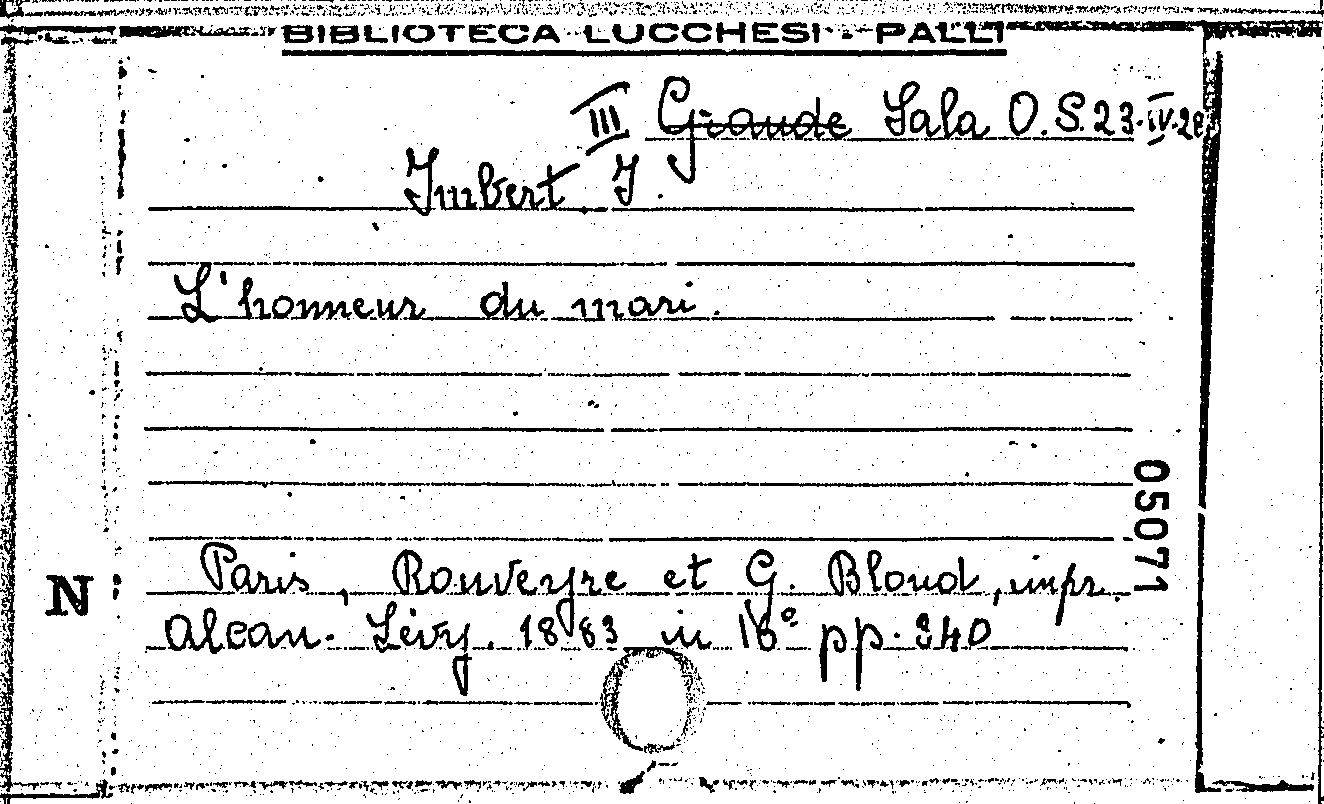 BIBLIOTECA LUCCHESI - PALLI
III Grande Sala O.S.23.IV.28
Imbert J.
L'honneur du mari.
05071
N
Paris, Rouveyre et G. Bloud, impr.
Alcan-Lévy. 1883 in 16° pp. 340